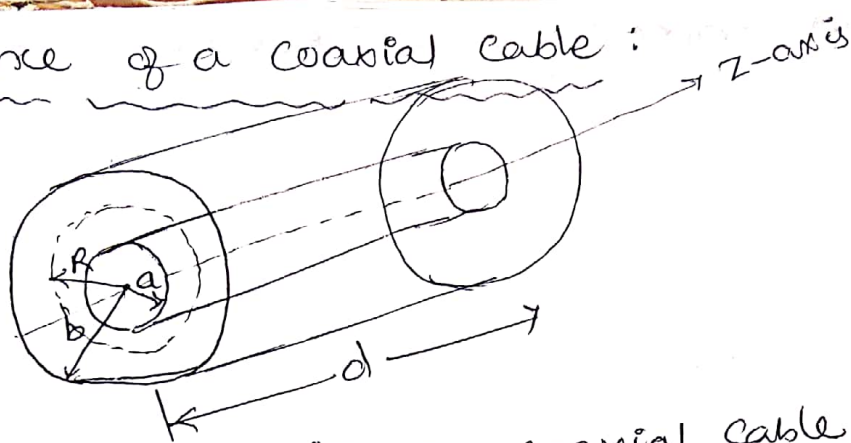 of a coaxial cable :
Z-axis
R
a
b
d
cable